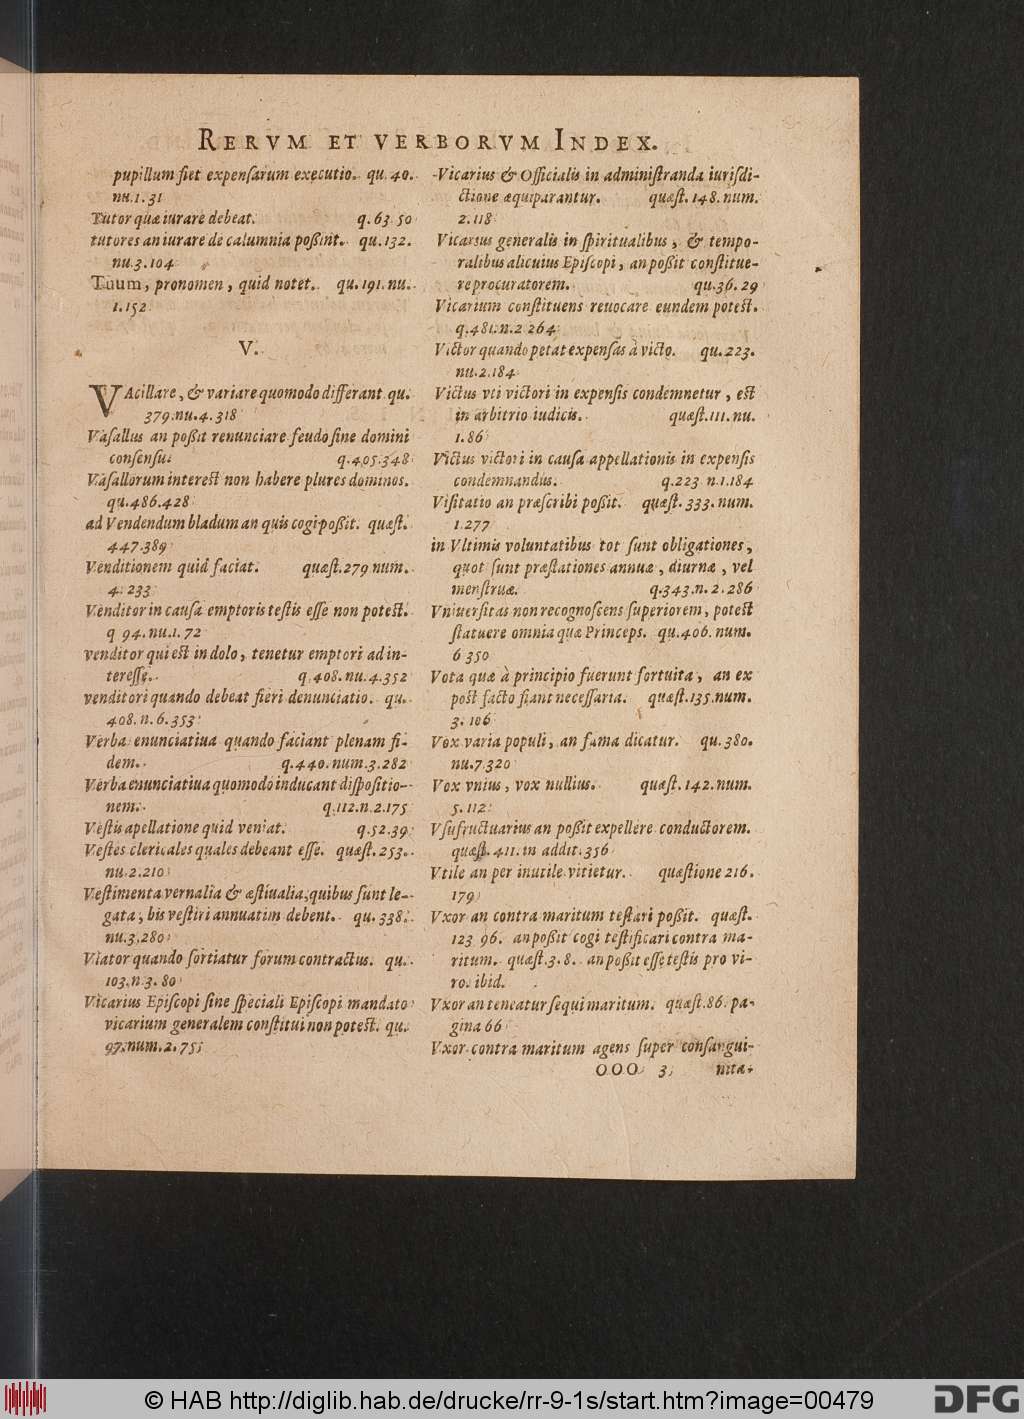 RERVM ET VERBORVM INDEX.
pupillum fiet expenſarum executio. qu. 40.
nu. 1. 31
Tutor quæ iurare debeat. q. 63. 50
tutores an iurare de calumnia poßint. qu. 132.
nu. 3. 104
Tuum, pronomen, quid notet. qu. 191. nu.
1. 152
V.
VAcillare, & variare quomodo differant qu.
379. nu. 4. 318
Vaſallus an poßit renunciare feudo ſine domini
conſenſu: q. 405. 348
Vaſallorum intereſt non habere plures dominos.
qu. 486. 428
ad Vendendum bladum an quis cogi poßit. quæſt.
447. 389
Venditionem quid faciat. quæſt. 279 num.
4. 233
Venditor in cauſa emptoris teſtis eſſe non poteſt.
q 94. nu. 1. 72
venditor qui eſt in dolo, tenetur emptori ad in-
tereſſe. q. 408. nu. 4. 352
venditori quando debeat fieri denunciatio. qu.
408. n. 6. 353
Verba enunciatiua quando faciant plenam fi-
dem. q. 440. num. 3. 282
Verba enunciatiua quomodo inducant diſpoſitio-
nem. q. 112. n. 2. 175
Veſtis apellatione quid veniat. q. 52. 39
Veſtes clericales quales debeant eſſe. quæſt. 253.
nu. 2. 210
Veſtimenta vernalia & æſtiualia, quibus ſunt le-
gata, bis veſtiri annuatim debent. qu. 338.
nu. 3. 280
Viator quando ſortiatur forum contractus. qu.
103. n. 3. 80
Vicarius Epiſcopi ſine ſpeciali Epiſcopi mandato
vicarium generalem conſtitui non poteſt. qu.
97. num. 2. 75
Vicarius & Officialis in adminiſtranda iuriſdi-
ctione æquiparantur. quæſt. 148. num.
2. 118
Vicarius generalis in ſpiritualibus, & tempo-
ralibus alicuius Epiſcopi, an poßit conſtitue-
re procuratorem. qu. 36. 29
Vicarium conſtituens reuocare eundem poteſt.
q. 481. n. 2 264
Victor quando petat expenſas à victo. qu. 223.
nu. 2. 184
Victus vti victori in expenſis condemnetur, eſt
in arbitrio iudicis. quæſt. 111. nu.
1. 86
Victus victori in cauſa appellationis in expenſis
condemnandus. q. 223 n. 1. 184
Viſitatio an præſcribi poßit. quæſt. 333. num.
1. 277
in Vltimis voluntatibus tot ſunt obligationes,
quot ſunt præſtationes annuæ, diurnæ, vel
menſtruæ. q. 343. n. 2. 286
Vniuerſitas non recognoſcens ſuperiorem, poteſt
ſtatuere omnia quæ Princeps. qu. 406. num.
6 350
Vota quæ à principio fuerunt fortuita, an ex
poſt facto fiant neceſſaria. quæſt. 135. num.
3. 106
Vox varia populi, an fama dicatur. qu. 380.
nu. 7 320
Vox vnius, vox nullius. quæſt. 142. num.
5. 112
Vſufructuarius an poßit expellere conductorem.
quæſt. 411. in addit. 356
Vtile an per inutile vitietur. quæſtione 216.
179
Vxor an contra maritum teſtari poßit. quæſt.
123 96. an poßit cogi teſtificari contra ma-
ritum. quæſt. 3. 8. an poßit eſſe teſtis pro vi-
ro. ibid.
Vxor an teneatur ſequi maritum. quæſt. 86. pa-
gina 66
Vxor contra maritum agens ſuper conſangui-
OOO 3 nita-
© HAB http://diglib.hab.de/drucke/rr-9-1s/start.htm?image=00479
DFG